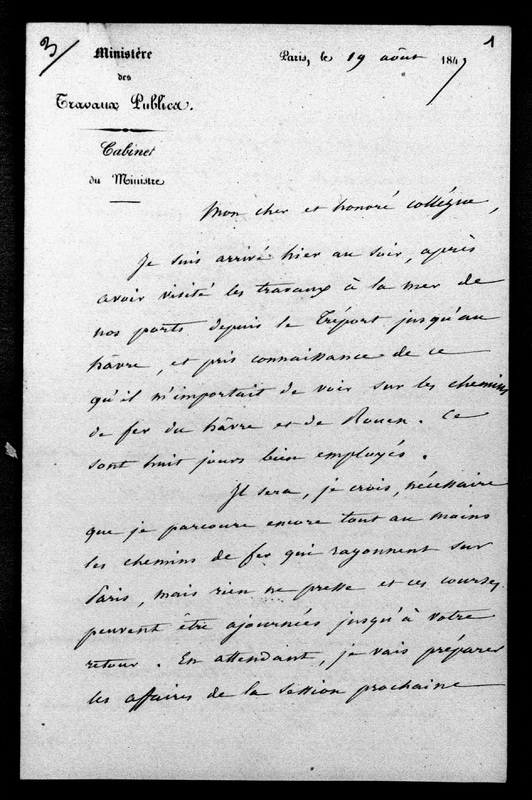 3/
1
Ministère
des
Travaux Publics.
Cabinet
du Ministre
Paris, le 19 août 1847
Mon cher et honoré collégue,
Je suis arrivé hier au soir, après
avoir visité les travaux à la mer de
nos ports depuis le Tréport jusqu'au
hâvre, et pris connaissance de ce
qu'il m'importait de voir sur les chemins
de fer du hâvre et de Rouen. Ce
sont huit jours bien employés.
Il sera, je crois, nécessaire
que je parcoure encore tout au moins
les chemins de fer qui rayonnent sur
Paris, mais rien ne presse et ces courses
peuvent être ajournées jusqu'à votre
retour. En attendant, je vais préparer
les affaires de la session prochaine